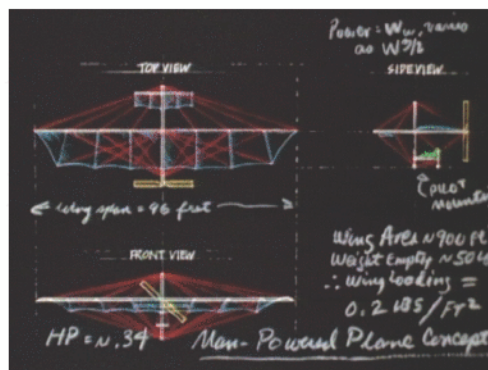 Power = Ww, varies
as W 3/2
TOP VIEW
SIDE VIEW
← wing span = 96 feet →
PILOT
FRONT VIEW
Wing Area ~ 900 Ft
Weight Empty ~ 50 lb
∴ Wing Loading =
0.2 LBS/FT²
HP = ~.34
Man-Powered Plane Concept